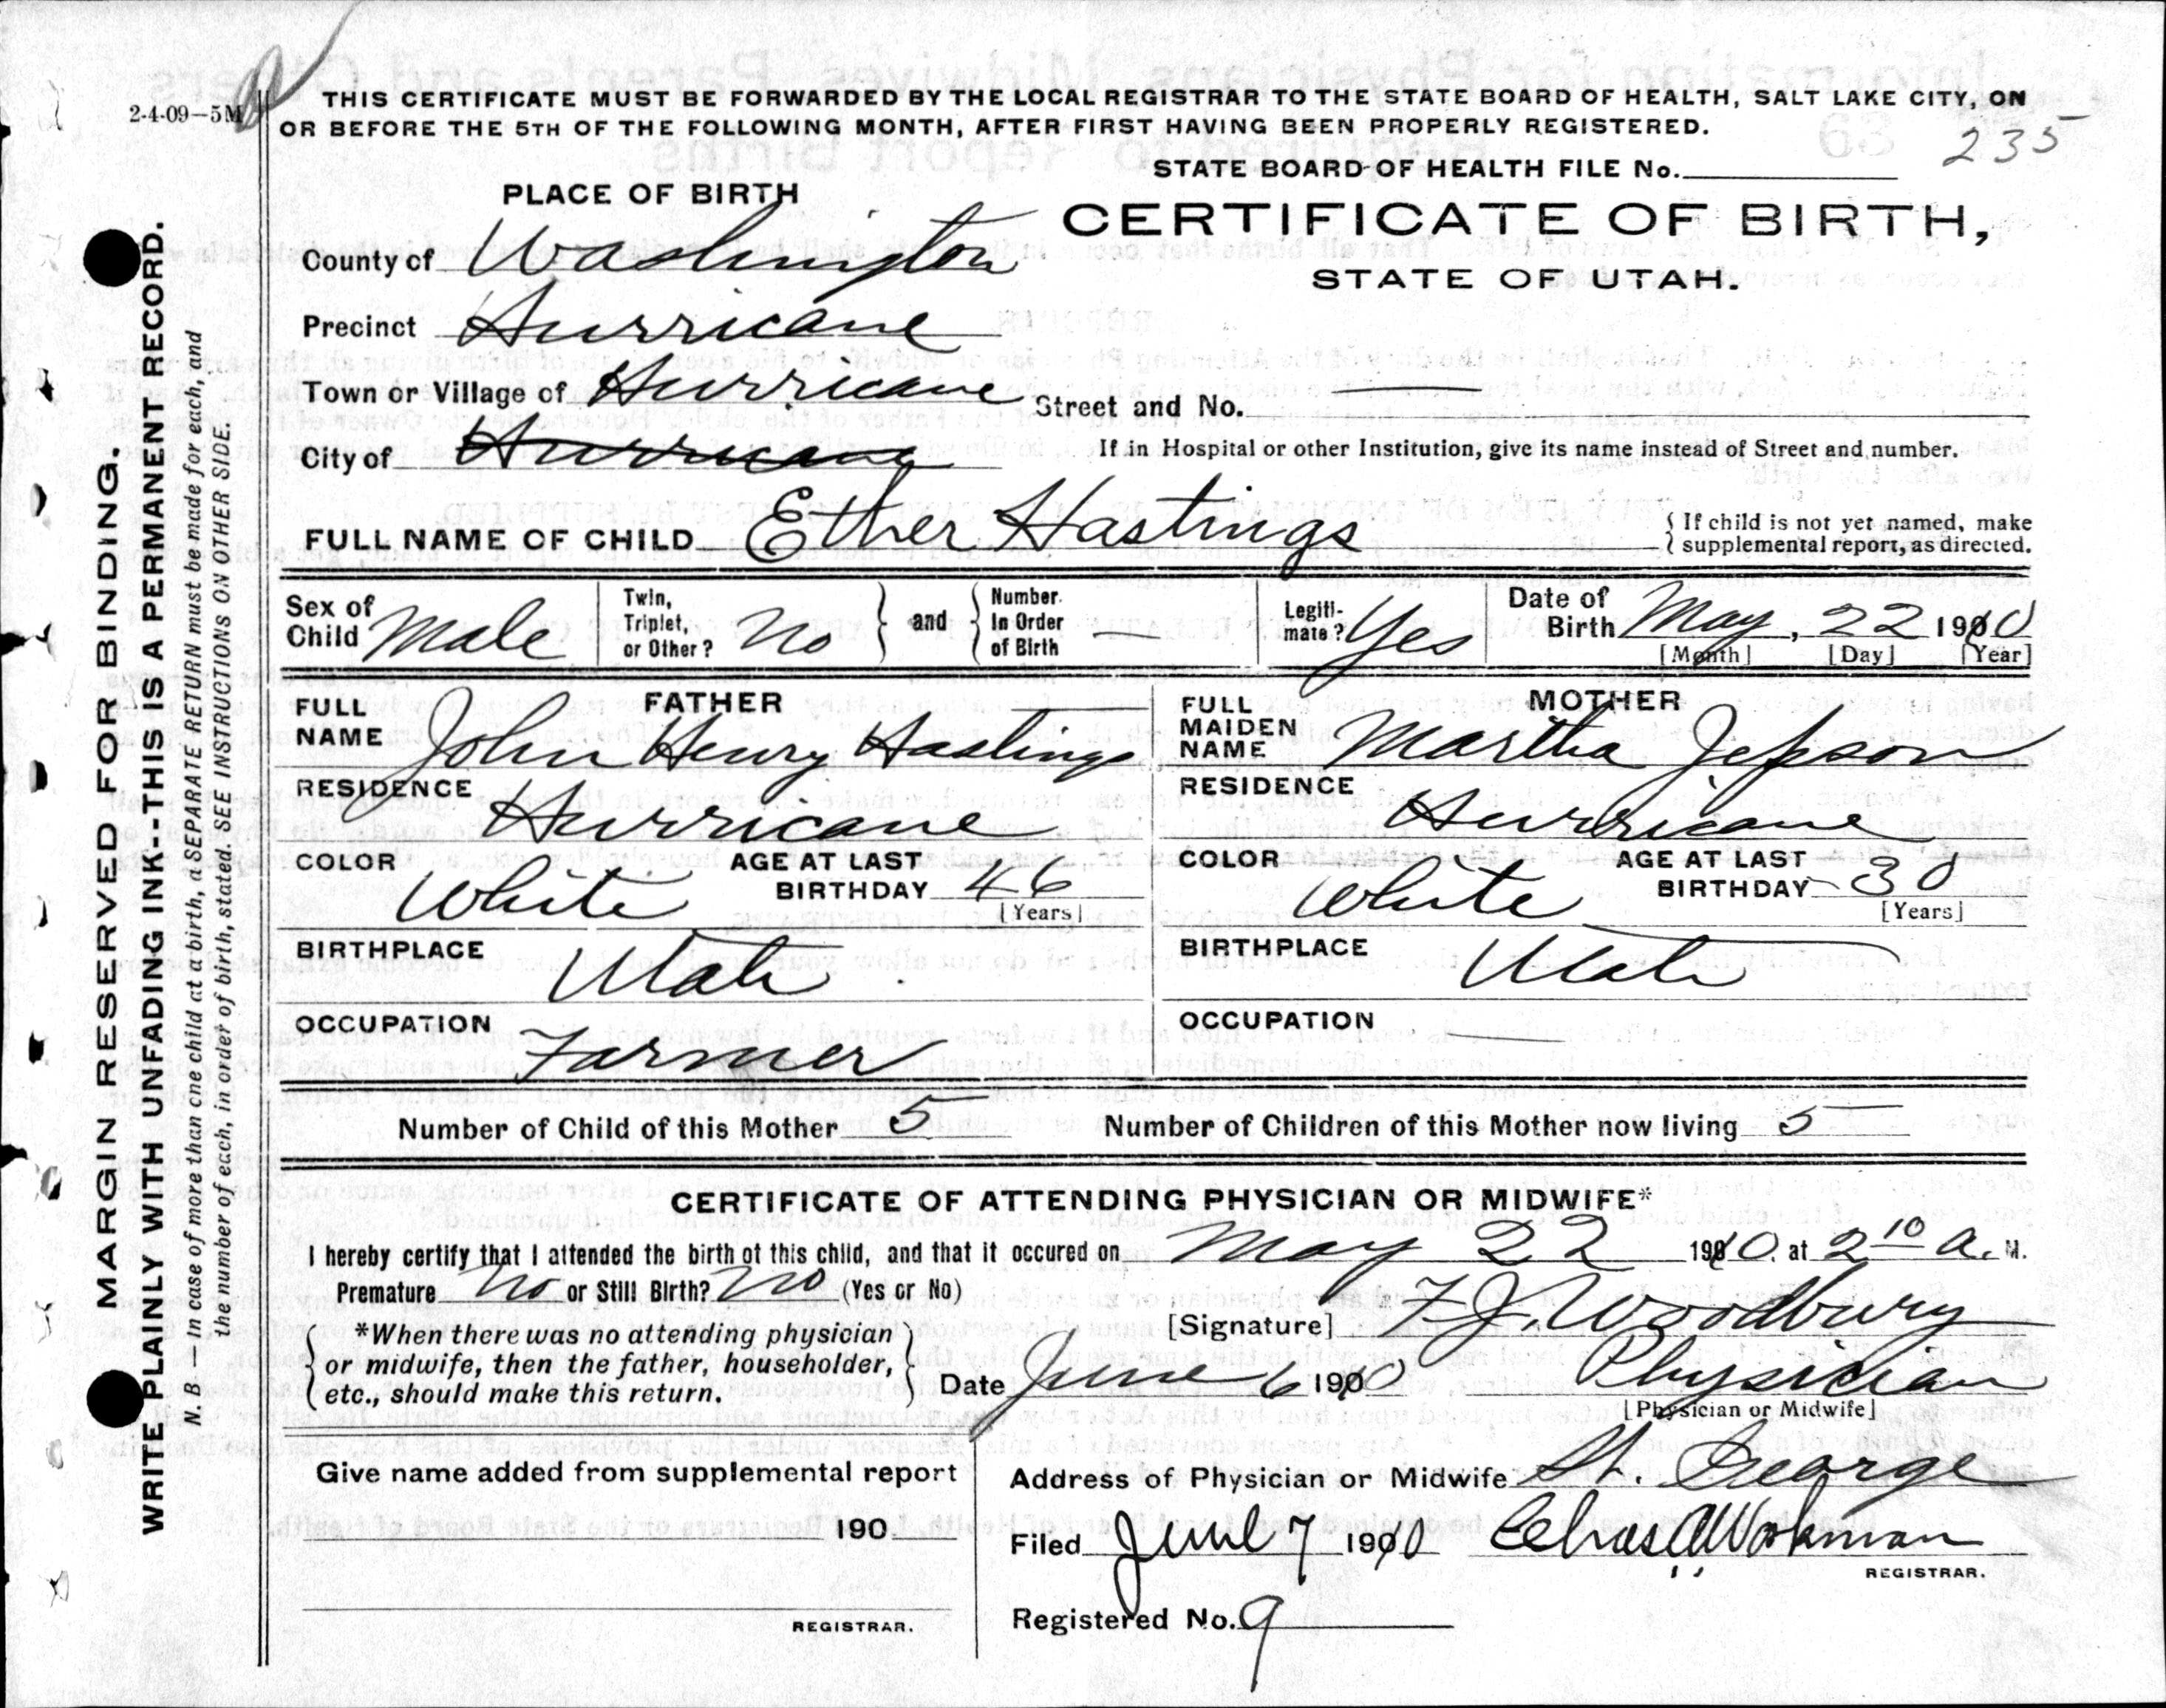 2-4-09—5M
THIS CERTIFICATE MUST BE FORWARDED BY THE LOCAL REGISTRAR TO THE STATE BOARD OF HEALTH, SALT LAKE CITY, ON
OR BEFORE THE 5TH OF THE FOLLOWING MONTH, AFTER FIRST HAVING BEEN PROPERLY REGISTERED.
235
STATE BOARD OF HEALTH FILE No.
PLACE OF BIRTH
CERTIFICATE OF BIRTH,
STATE OF UTAH.
County of Washington
Precinct Hurricane
Town or Village of Hurricane Street and No. —
City of Hurricane If in Hospital or other Institution, give its name instead of Street and number.
FULL NAME OF CHILD Ether Hastings { If child is not yet named, make
supplemental report, as directed.
Sex of Child Male Twin, Triplet, or Other? No } and { Number In Order of Birth — Legiti-mate? Yes Date of Birth May, 22 1910
[Month] [Day] [Year]
FATHER
FULL NAME John Henry Hastings
RESIDENCE Hurricane
COLOR White AGE AT LAST BIRTHDAY 46
[Years]
BIRTHPLACE Utah
OCCUPATION Farmer
MOTHER
FULL MAIDEN NAME Martha Jepson
RESIDENCE Hurricane
COLOR White AGE AT LAST BIRTHDAY 30
[Years]
BIRTHPLACE Utah
OCCUPATION —
Number of Child of this Mother 5 Number of Children of this Mother now living 5
CERTIFICATE OF ATTENDING PHYSICIAN OR MIDWIFE*
I hereby certify that I attended the birth of this child, and that it occured on May 22 1910. at 2 10 a. M.
Premature No or Still Birth? No (Yes or No)
*When there was no attending physician
or midwife, then the father, householder,
etc., should make this return.
[Signature] F. J. Woodbury
Date June 6 1910 Physician
[Physician or Midwife]
Give name added from supplemental report
190
REGISTRAR.
Address of Physician or Midwife St. George
Filed June 7 1910 Workman
REGISTRAR.
Registered No. 9
MARGIN RESERVED FOR BINDING.
WRITE PLAINLY WITH UNFADING INK--THIS IS A PERMANENT RECORD.
N. B.—In case of more than one child at a birth, a SEPARATE RETURN must be made for each, and
the number of each, in order of birth, stated. SEE INSTRUCTIONS ON OTHER SIDE.